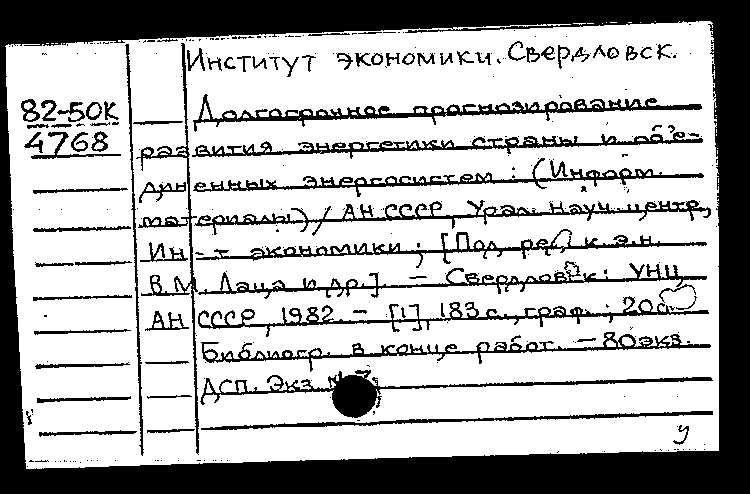 Институт экономики. Свердловск.
82-50К
4768
Долгосрочное прогнозирование
развития энергетики страны и объе-
диненных энергосистем : (Информ.
материалы) / АН СССР, Урал. науч. центр,
Ин-т экономики ; [Под ред. к.э.н.
В.М. Лаца и др.]. - Свердловск: УНЦ
АН СССР, 1982. - [1], 183 с., граф. ; 20
Библиогр. в конце работ. - 80 экз.
ДСП. Экз. №
у